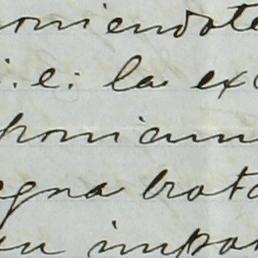 oniendote
i.e: la ex
poniam
egna trata
un impor